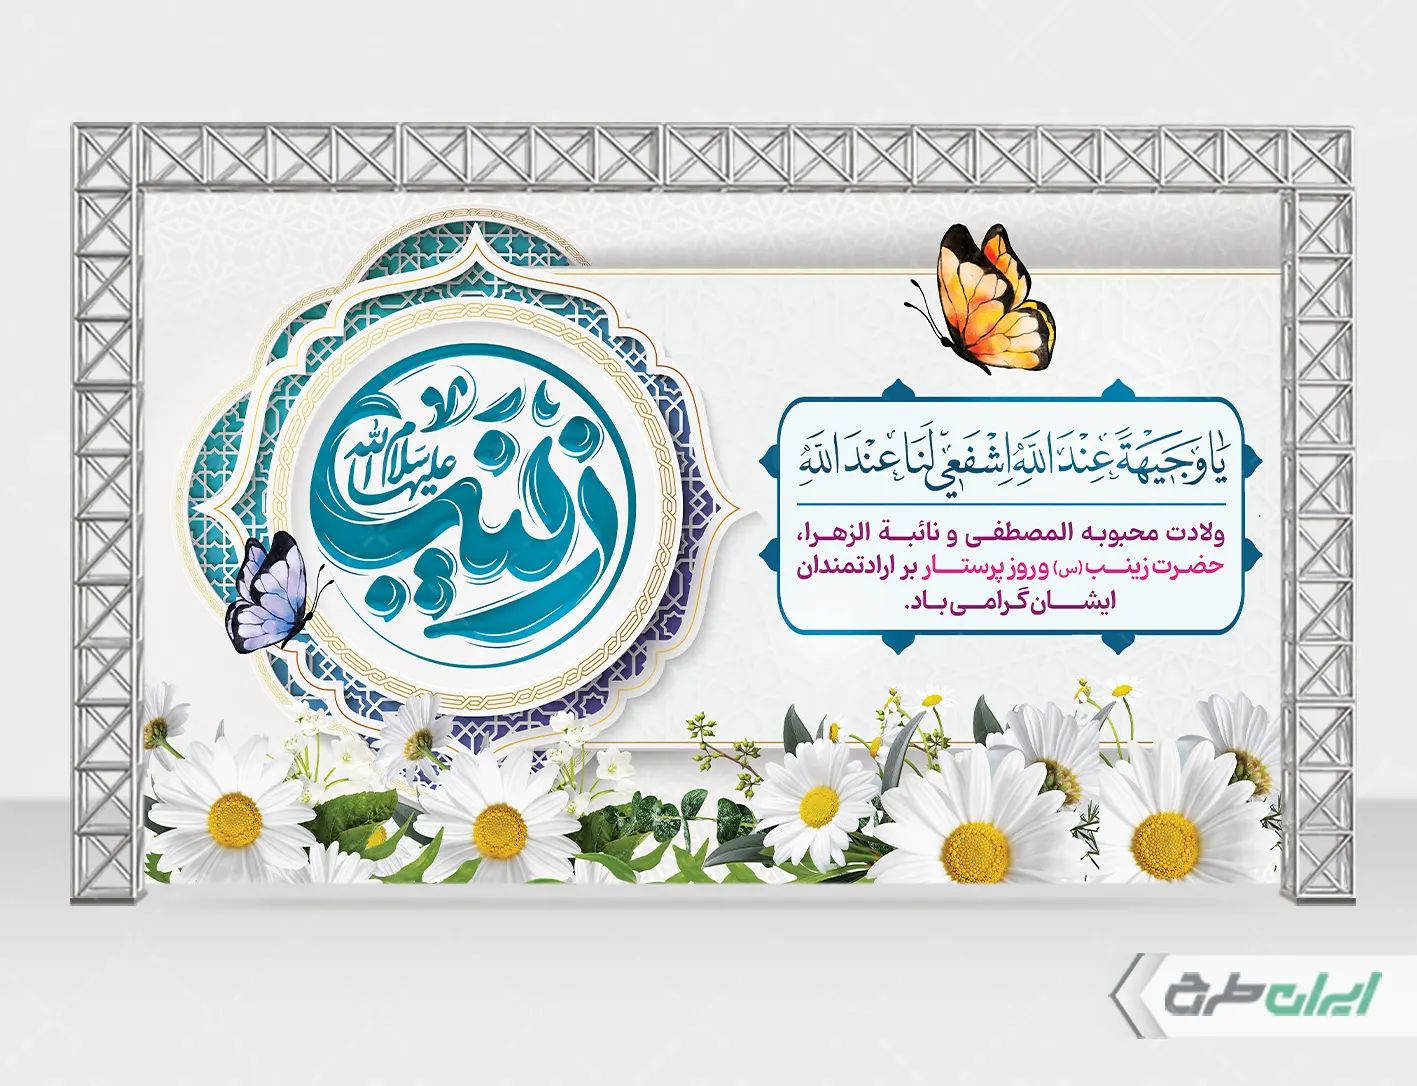 یا زینب
سلام الله علیها
یٰا وَجیهَةً عِنْدَ اللّٰهِ اِشْفَعی لَنٰا عِنْدَ اللّٰه
ولادت محبوبه المصطفی و نائبة الزهرا،
حضرت زینب (س) و روز پرستار بر ارادتمندان
ایشان گرامی باد.
ایران طرح